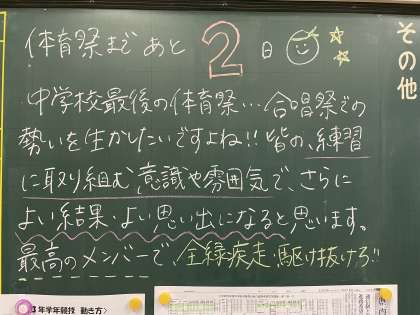 体育祭まであと2日
その他
中学校最後の体育祭…合唱祭での
勢いを生かしたいですよね!!皆の、練習
に取り組む意識や雰囲気で、さらに
よい結果・よい思い出になると思います。
最高のメンバーで、全緑疾走駆け抜けろ!!
3年学年競技 動き方〉